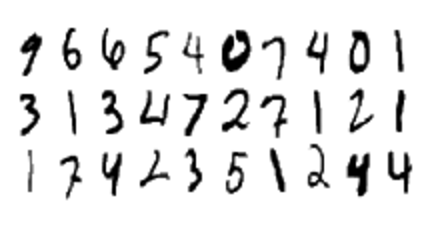 9 6 6 5 4 0 7 4 0 1
3 1 3 4 7 2 7 1 2 1
1 7 4 2 3 5 1 2 4 4